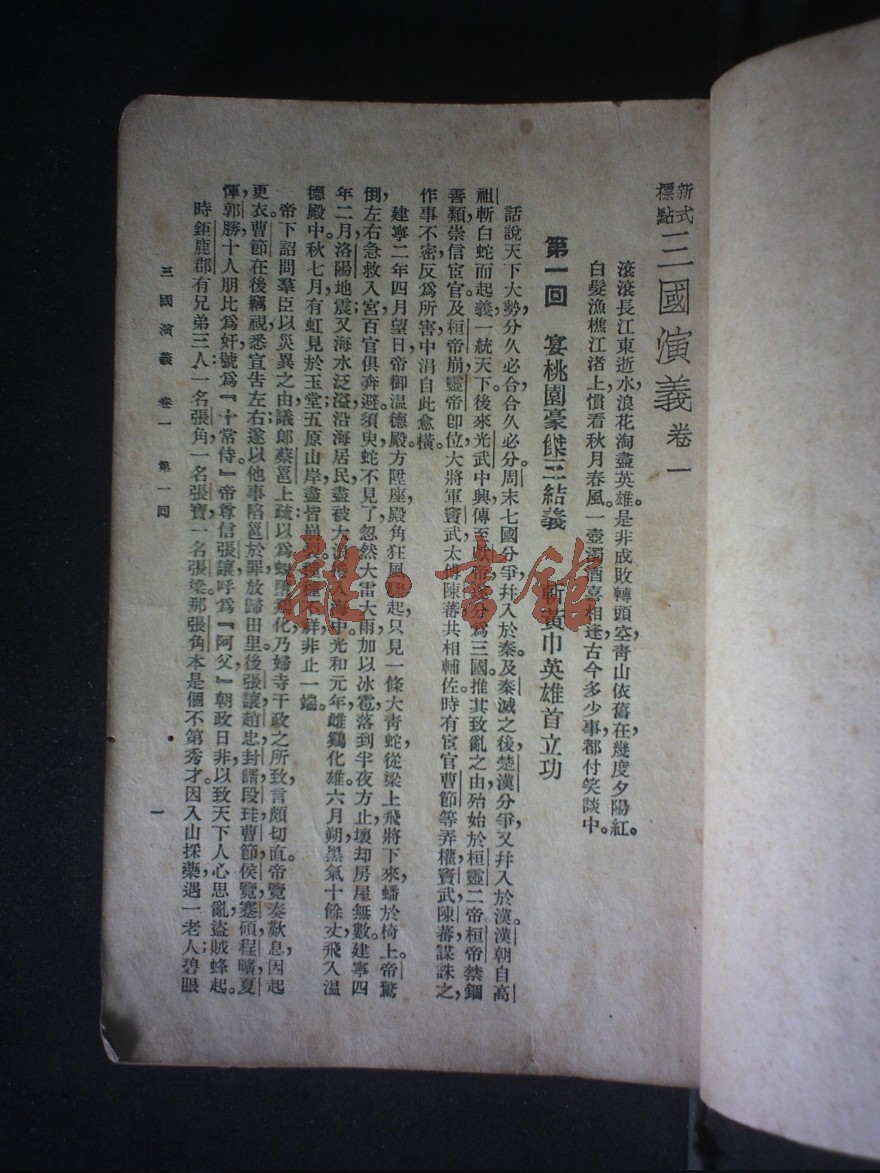 新式標點三國演義 卷一
滾滾長江東逝水，浪花淘盡英雄。是非成敗轉頭空，靑山依舊在，幾度夕陽紅。
白髮漁樵江渚上，慣看秋月春風。一壺濁酒喜相逢，古今多少事，都付笑談中。
第一回 宴桃園豪傑三結義 斬黃巾英雄首立功
話說天下大勢，分久必合，合久必分。周末七國分爭，幷入於秦。及秦滅之後，楚漢分爭，又幷入於漢。漢朝自高
祖斬白蛇而起義，一統天下。後來光武中興，傳至獻帝，遂分爲三國。推其致亂之由，殆始於桓靈二帝。桓帝禁錮
善類，崇信宦官。及桓帝崩，靈帝卽位，大將軍竇武太傅陳蕃共相輔佐。時有宦官曹節等弄權，竇武陳蕃謀誅之，
作事不密，反爲所害。中涓自此愈橫。
建寧二年四月望日，帝御溫德殿。方陞座，殿角狂風驟起，只見一條大青蛇，從梁上飛將下來，蟠於椅上。帝驚
倒，左右急救入宮，百官俱奔避。須臾，蛇不見了。忽然大雷大雨，加以冰雹，落到半夜方止，壞却房屋無數。建寧四
年二月，洛陽地震；又海水泛溢，沿海居民，盡被大浪捲入海中。光和元年，雌鷄化雄。六月朔，黑氣十餘丈，飛入溫
德殿中。秋七月，有虹見於玉堂，五原山岸，盡皆崩裂。種種不祥，非止一端。
帝下詔問羣臣以災異之由，議郎蔡邕上疏，以爲蜺墮鷄化，乃婦寺干政之所致，言頗切直。帝覽奏歎息，因起
更衣。曹節在後竊視，悉宣告左右；遂以他事陷邕於罪，放歸田里。後張讓，趙忠，封諝，段珪，曹節，侯覽，蹇碩，程曠，夏
惲，郭勝，十人朋比爲奸，號爲『十常侍』。帝尊信張讓，呼爲『阿父』，朝政日非，以致天下人心思亂，盜賊蜂起。
時鉅鹿郡有兄弟三人：一名張角，一名張寶，一名張梁。那張角本是個不第秀才。因入山採藥，遇一老人，碧眼
三國演義 卷一 第一回
一
龍人書館